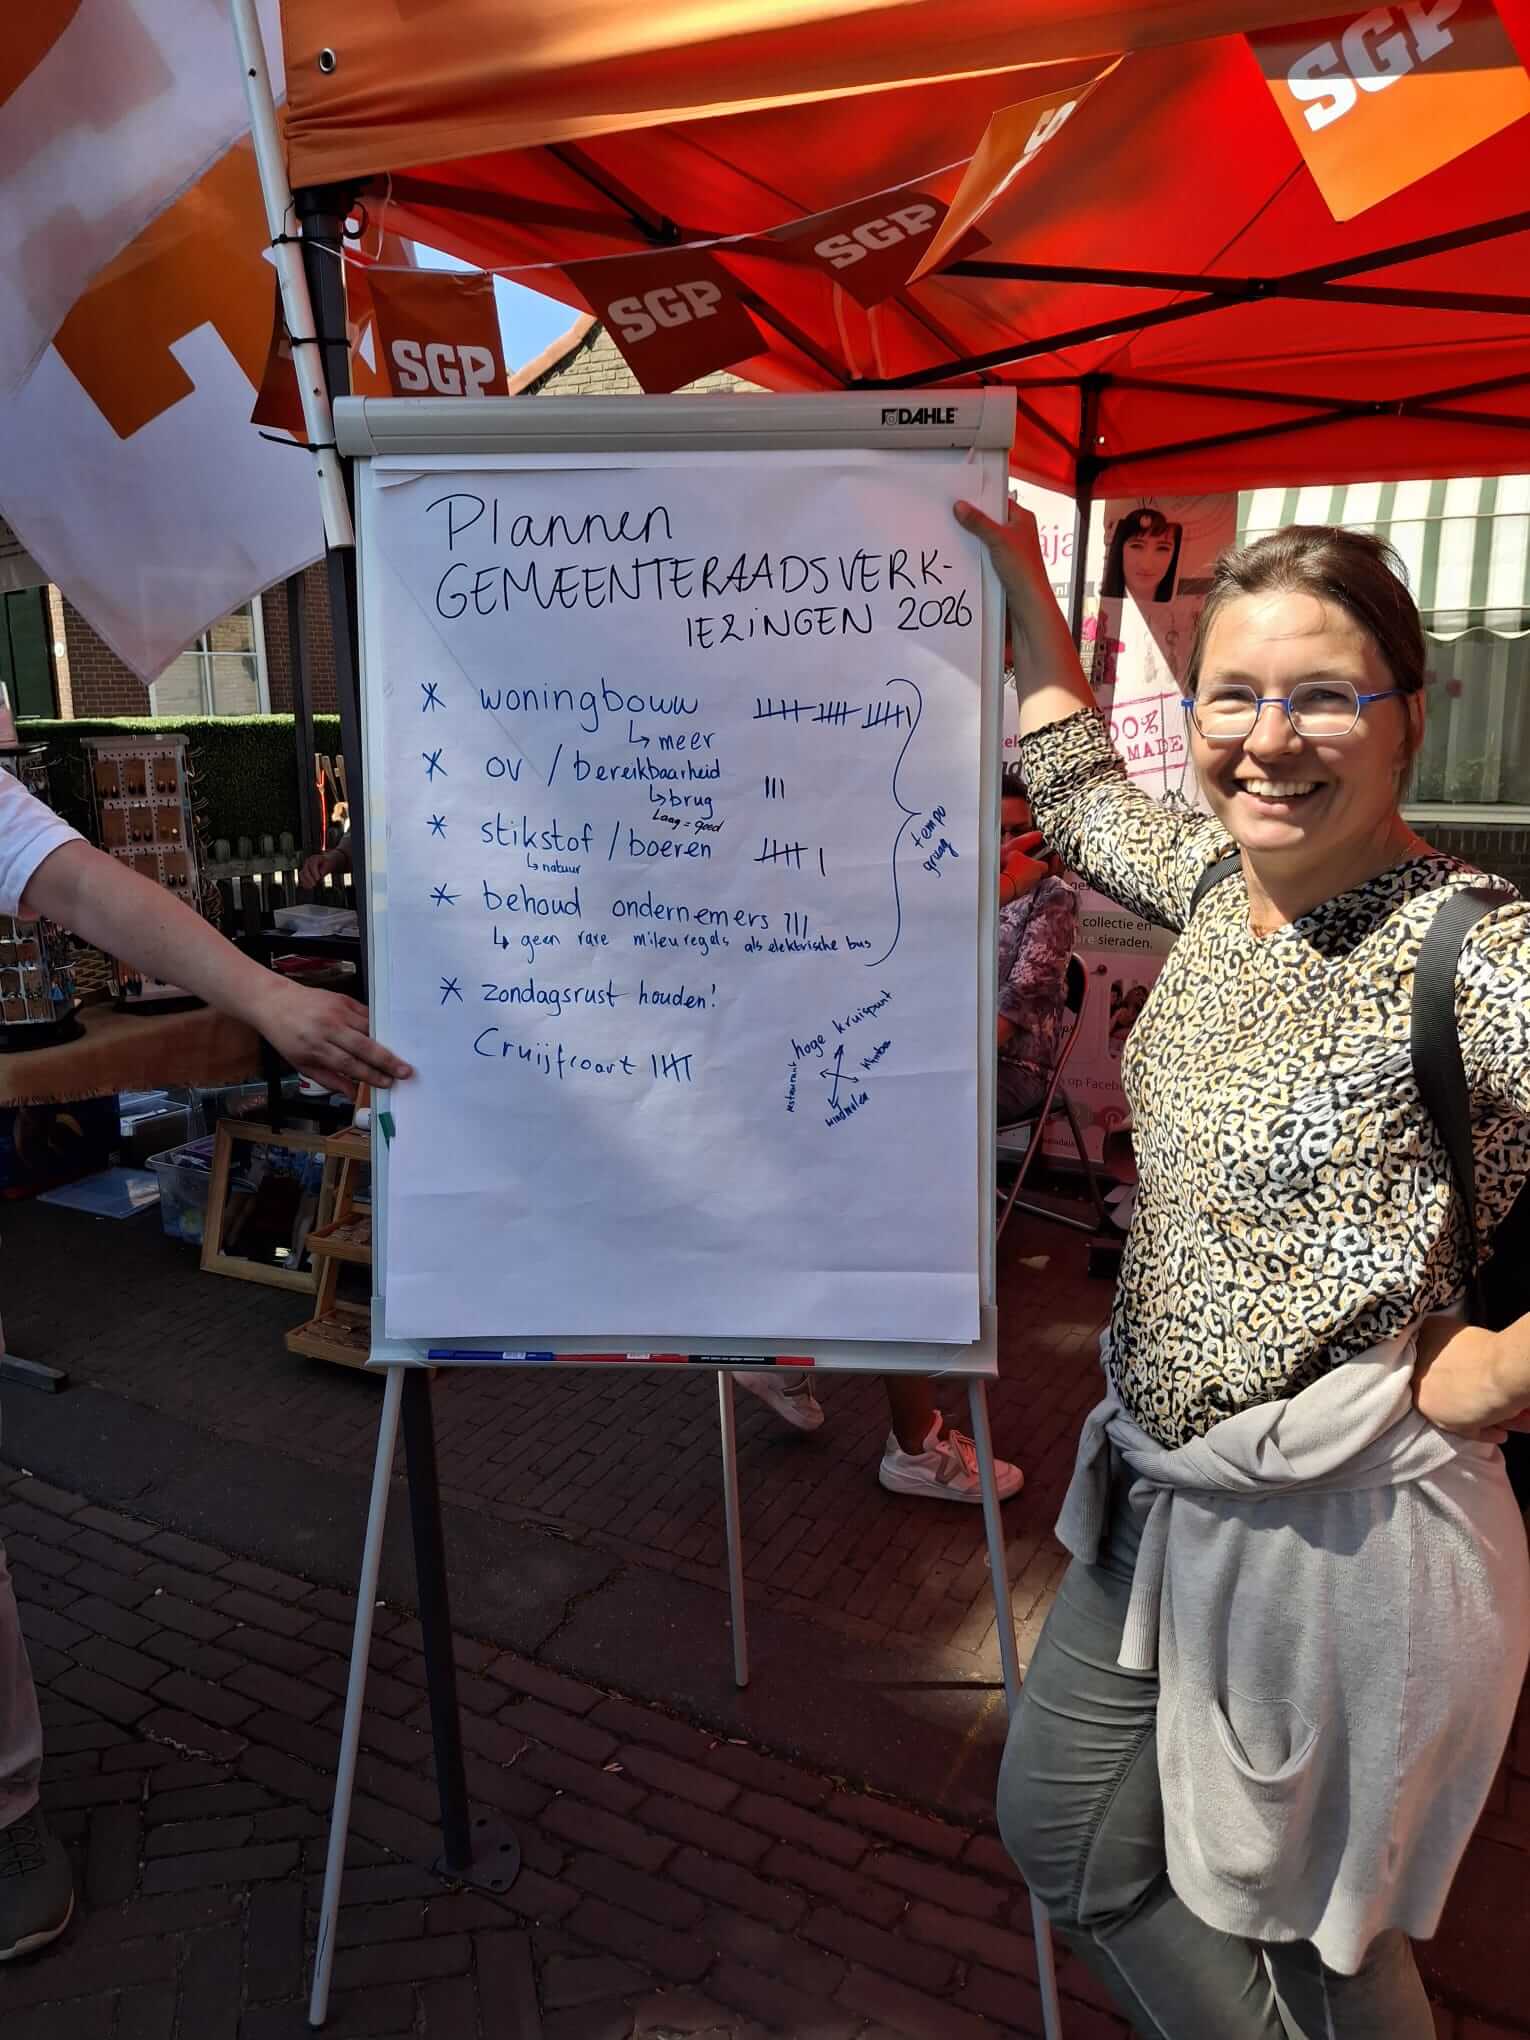 SGP
SGP
SGP
SGP
DAHLE
Plannen
GEMEENTERAADSVERK-
IEZINGEN 2026
* woningbouw
↳ meer
* OV / bereikbaarheid
↳ brug
Laag = goed
* stikstof / boeren
↳ natuur
* behoud ondernemers
↳ geen rare milieuregels als elektrische bus
tempo
graag
* zondagsrust houden!
Cruijfcoart
hoge kruispunt
restaurant
windmolen
100%
MADE
collectie en
sieraden.
op Facebo